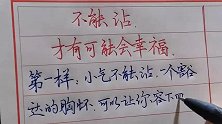 不能沾
才有可能会幸福.
第一样，小气不能沾，一个豁
达的胸怀，可以让你容下